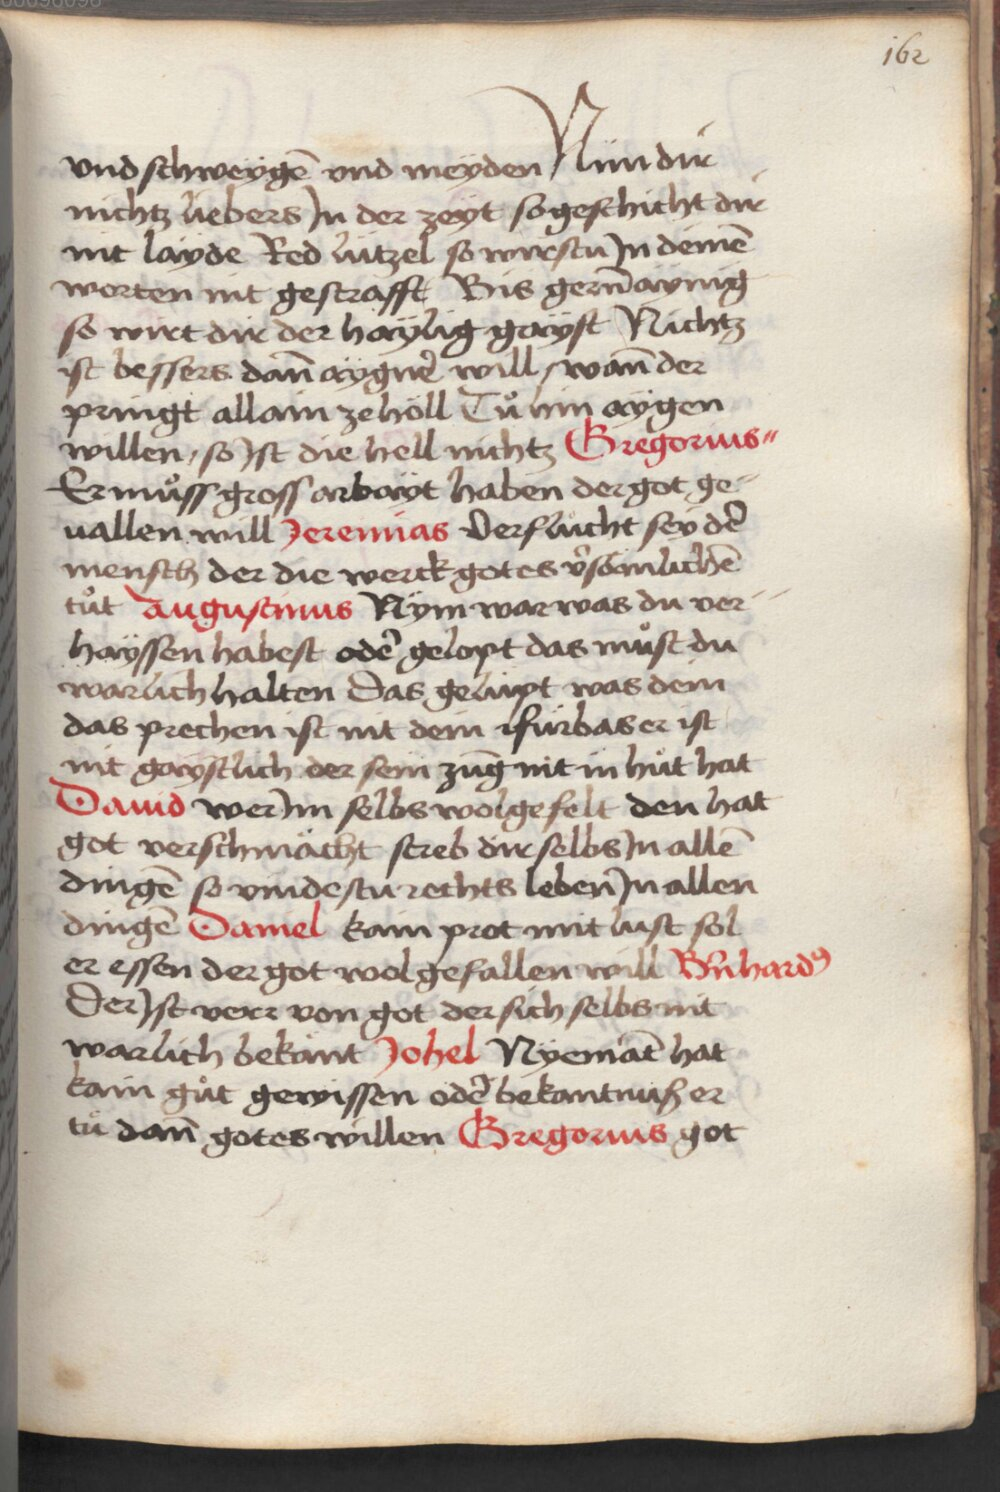 162
vnd schweygē vnd meyden Nim dir
nichtz liebers Jn der zeyt so geschicht dir
nit layde Red lützel so wirstu Jn deinē
worten nit gestrafft Bis gerūaynig
so wirt dir der haylig gayst Nichtz
ist bessers dañ aygner will / wañ der
pringt allain ze höll Tů hin aygen
willen, so Jst die hell nichtz Gregorius
Er můss gross arbayt haben der got ge-
uallen will Jeremias Verflücht sey der
mensch der die werck gotes v̉sömlichē
tůt Augustinus Nÿm war was du ver-
hayssen habest oder gelopt das můst du
warlich halten Das gelüpt was dein
das prechen ist nit dein fürbas er ist
nit gaystlich der sein zung nit in hůt hat
Dauid wer Jm selbs wolgefelt den hat
got verschmächt streb dir selbs Jn allē
dingē so vindestu rechts leben Jn allen
dingē Daniel kain prot mit lust sol
er essen der got wolgefallen will B̃nhardꝰ
Der Jst verr von got der sich selbs nit
warlich bekant Johel Nyemāt hat
kain gůt gewissen oder bekantnuß er
tů dañ gotes willen Gregorius got